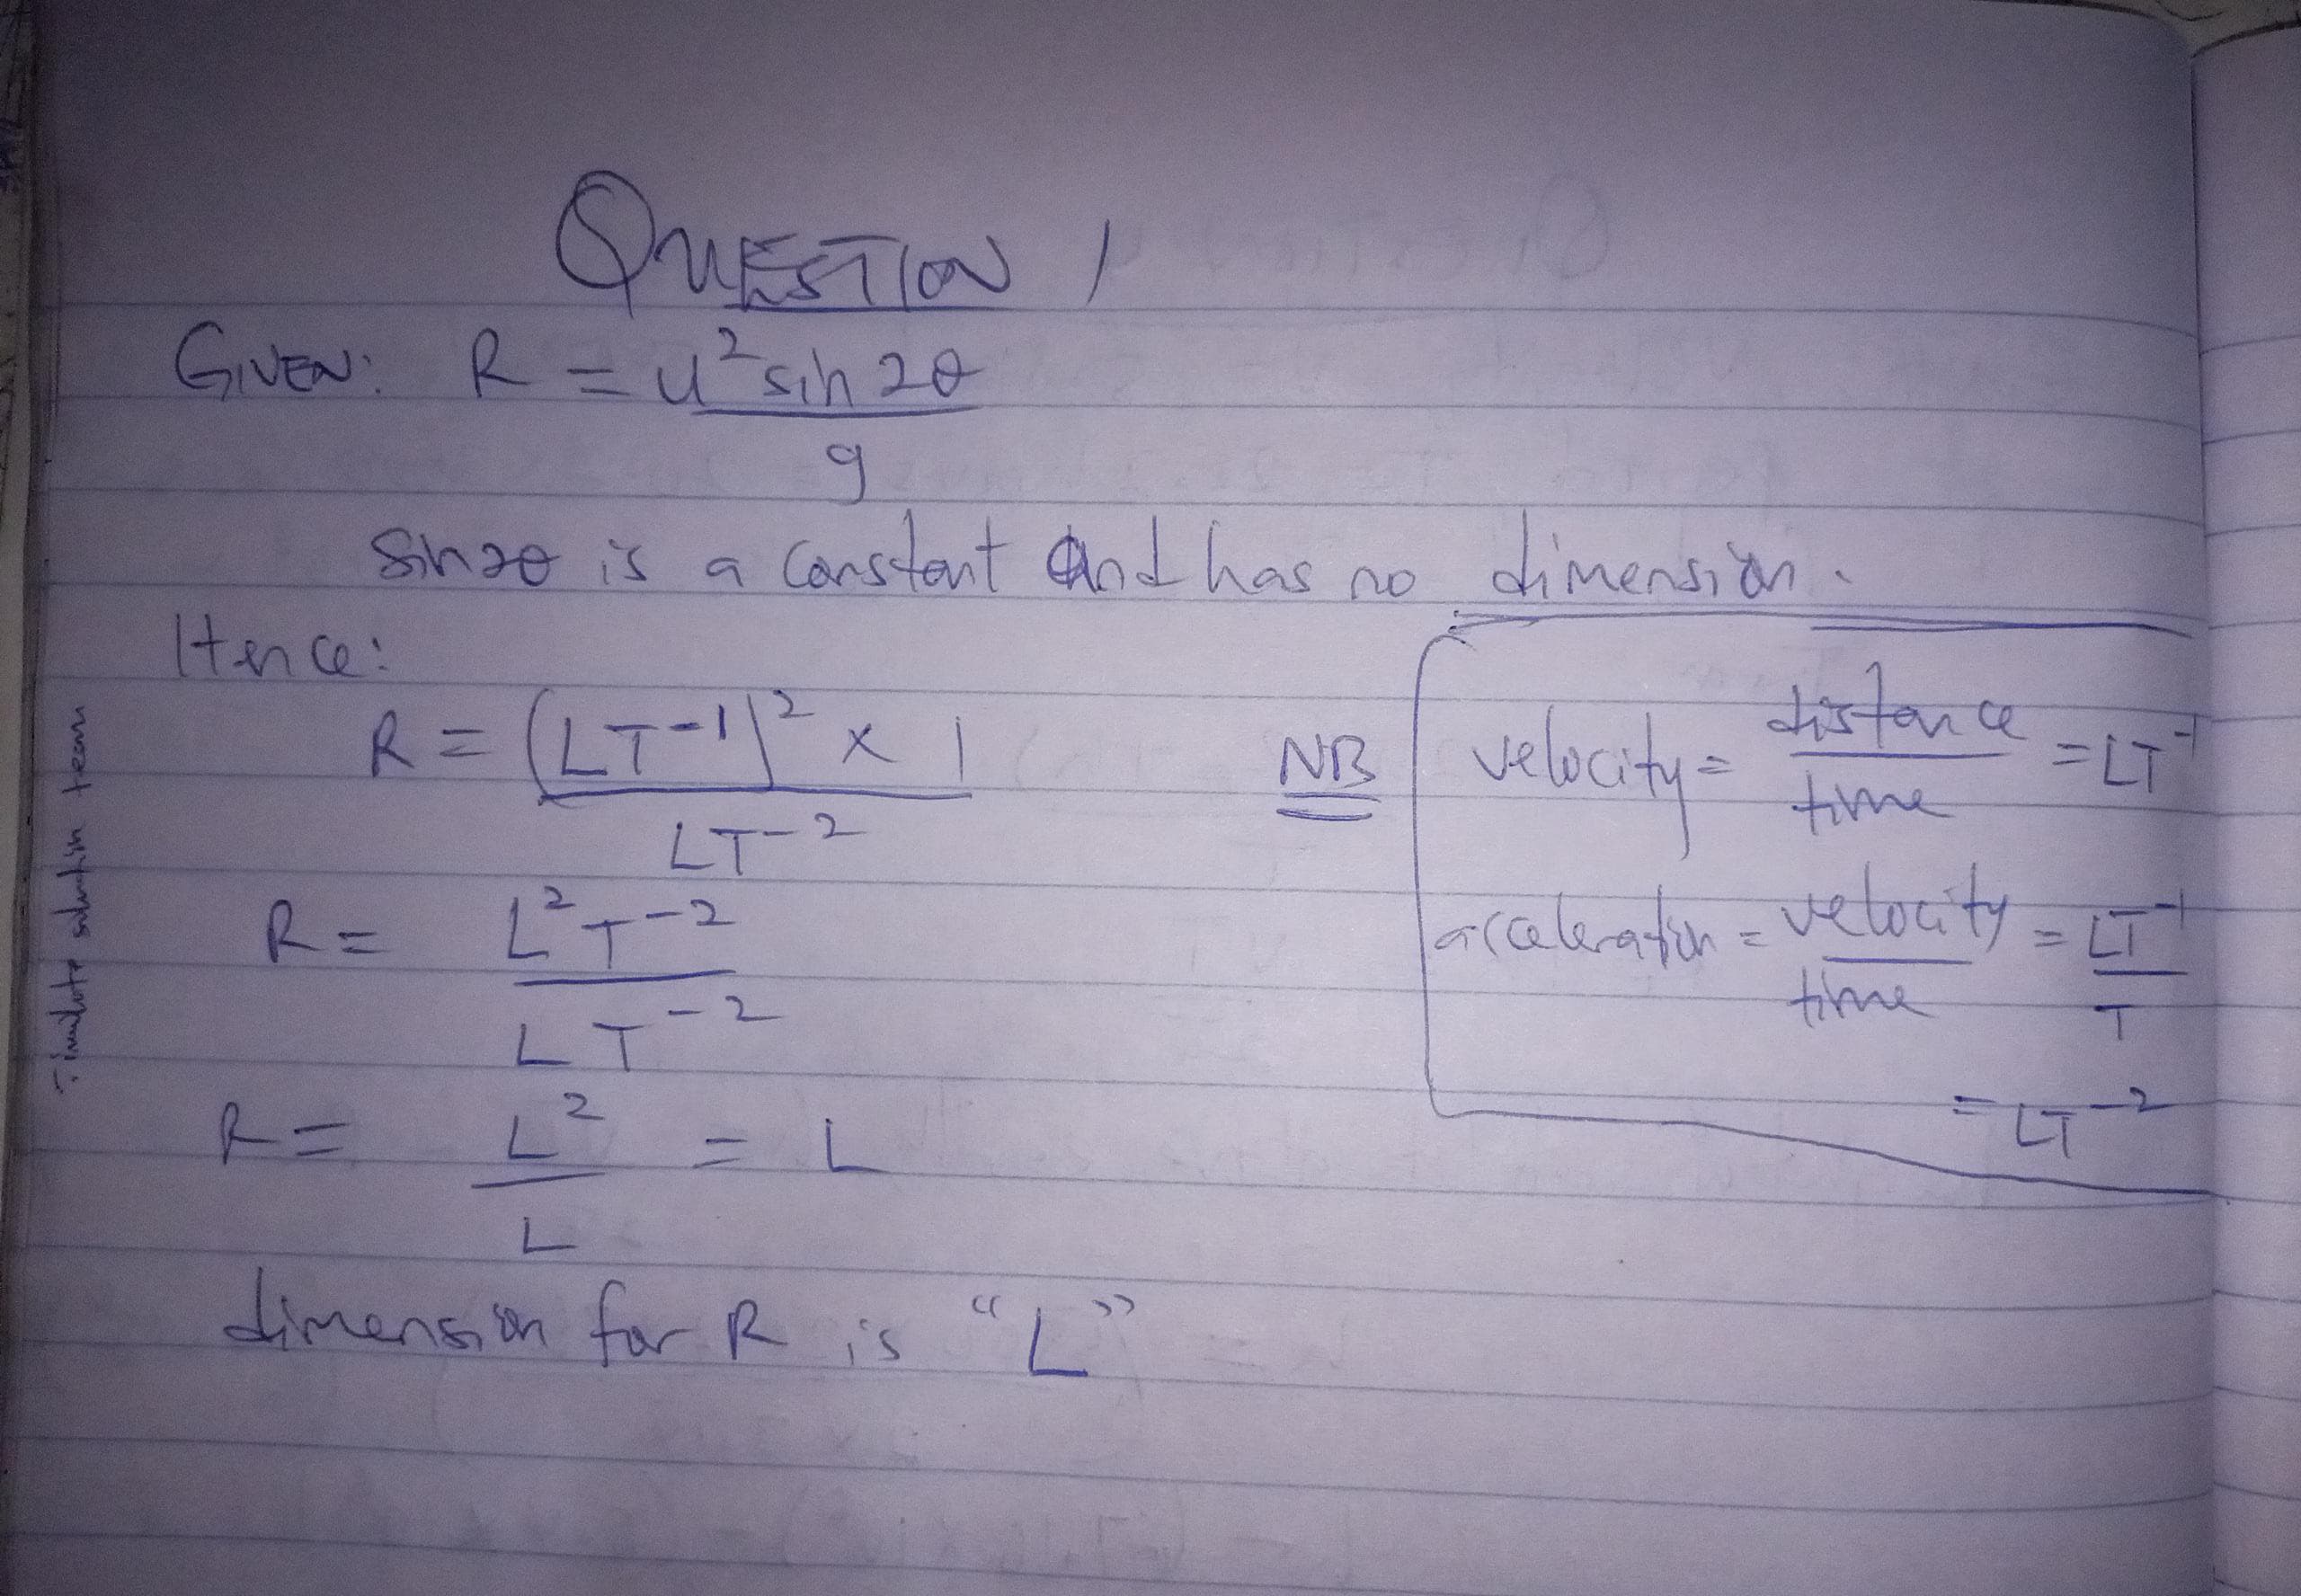 QUESTION 1
GIVEN: R = u² sin 2θ
g
Sin2θ is a constant and has no dimension.
Hence:
R = (LT⁻¹)² × 1
LT⁻²
R = L²T⁻²
LT⁻²
R = L² = L
L
dimension for R is "L"
NB
velocity = distance = LT⁻¹
time
acceleration = velocity = LT⁻¹
time T
= LT⁻²
solution team